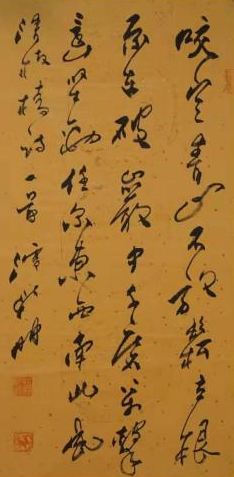 咬定青山不放鬆立根
原在破巖中千磨萬擊
還堅勁任尔東西南北風
橋詩一首